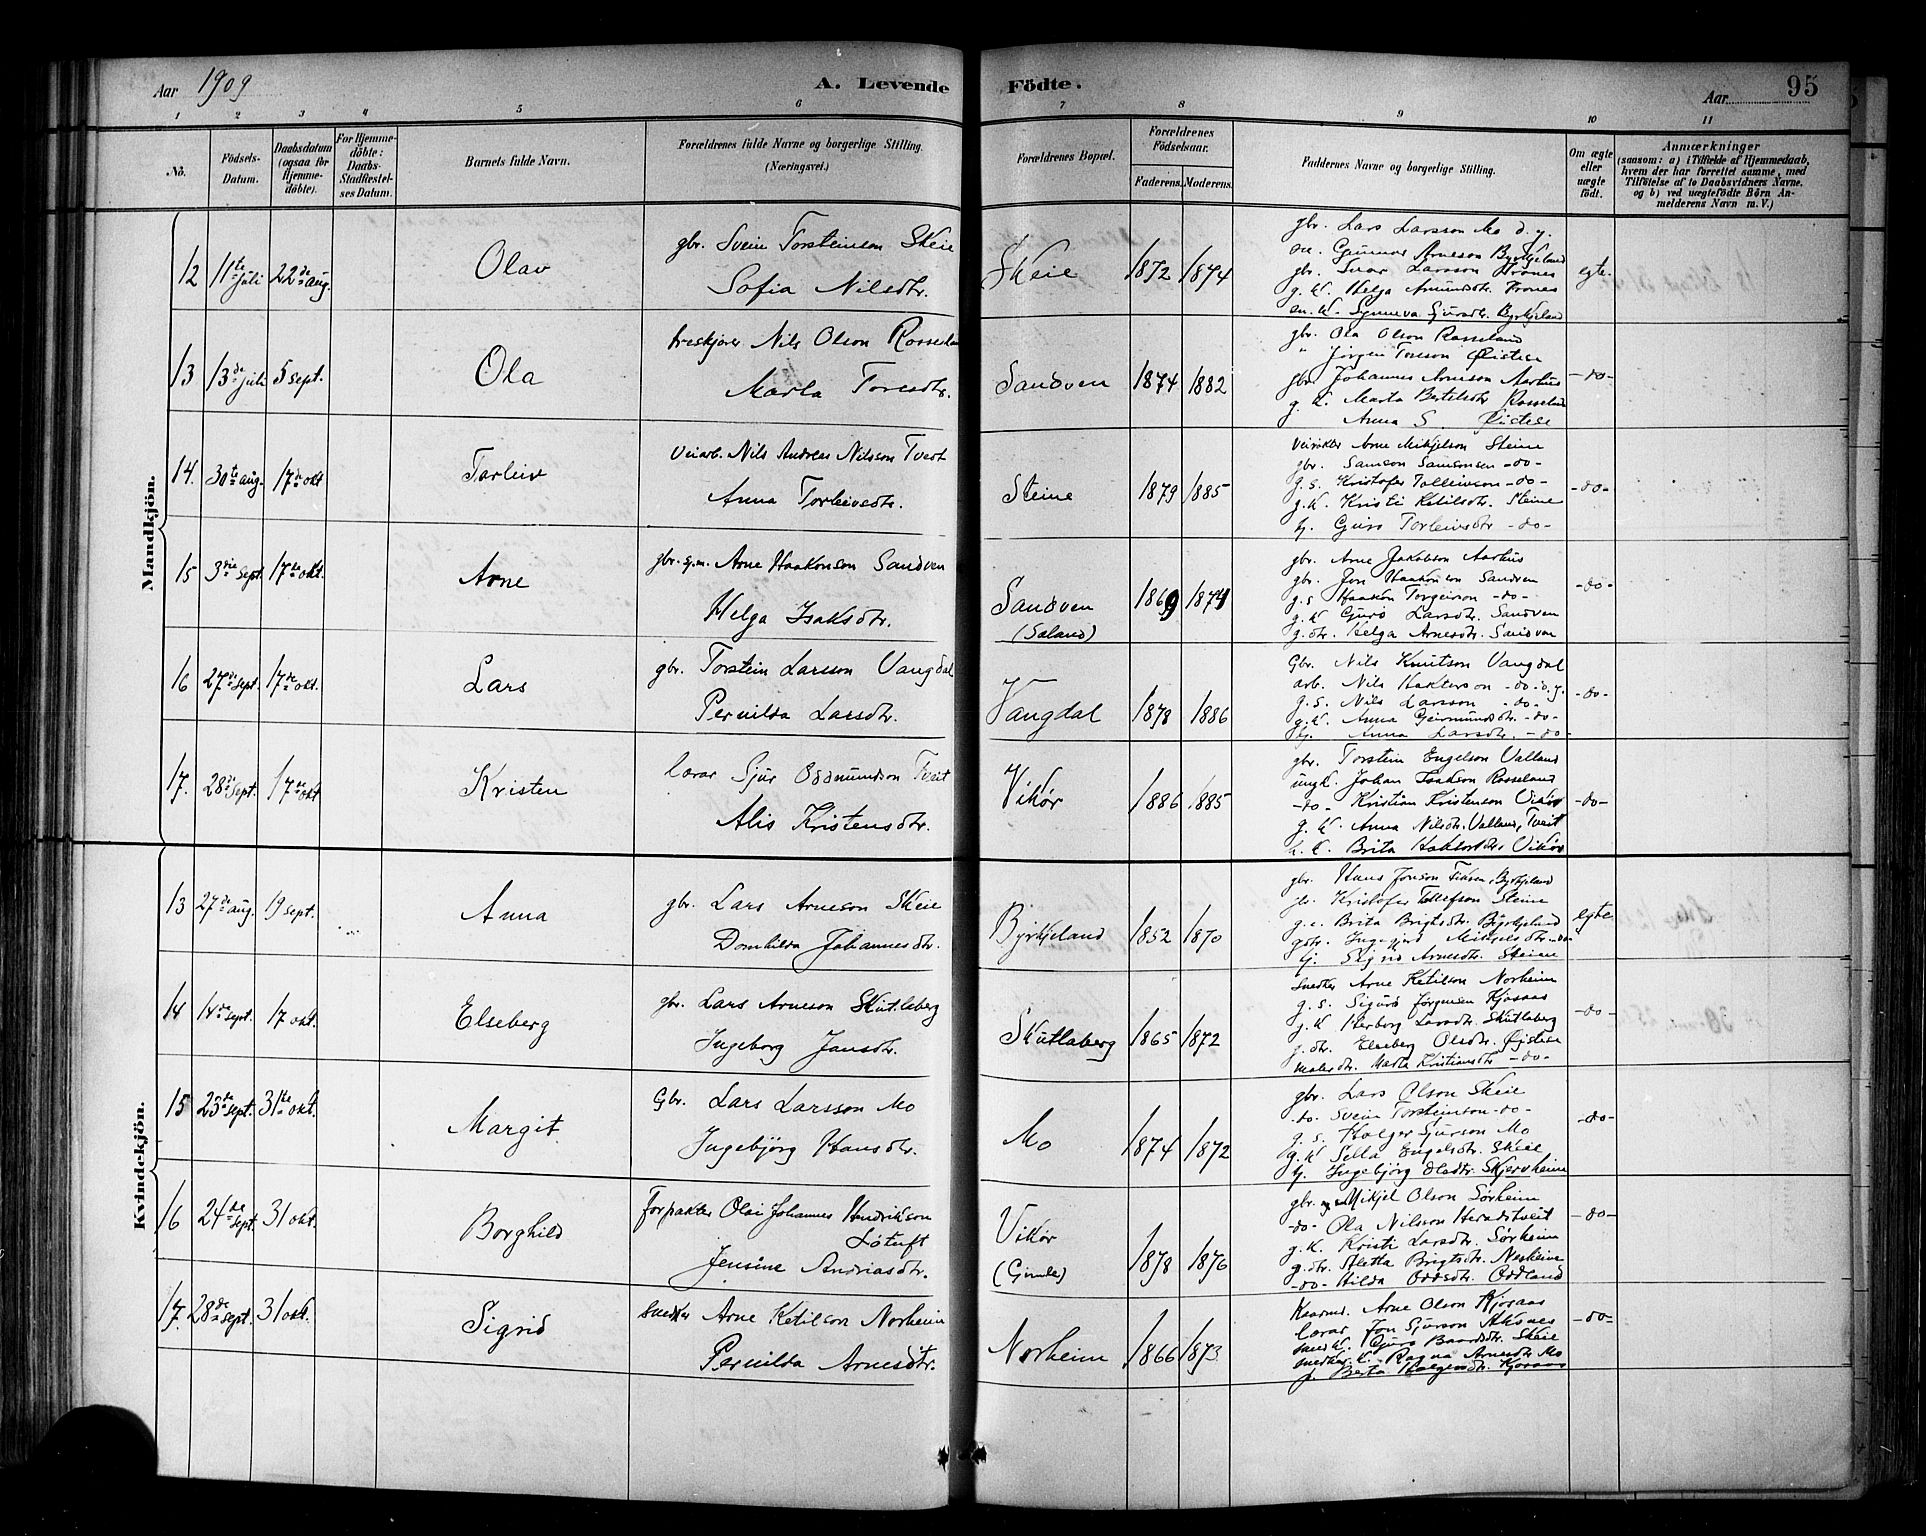 Aar 1909
A. Levende
Födte.
95
Aar
1 2 3 4 5 6 7 8 9 10 11
No.
Födsels-Datum.
Daabsdatum (ogsaa för Hjemme-döbte).
For Hjemme-döbte: Daabs-Stadfæstel-ses Datum.
Barnets fulde Navn.
Forældrenes fulde Navne og borgerlige Stilling.
(Næringsvei.)
Forældrenes Bopæl.
Forældrenes Födselsaar.
Faderens. Moderens.
Faddernes Navne og borgerlige Stilling.
Om ægte eller uægte födt.
Anmærkninger
(saasom: a) i Tilfælde af Hjemmedaab, hvem der har forrettet samme, med Tilföielse af to Daabsvidners Navne, og b) ved uægtefödte Börn An-melderens Navn m. V.)
Mandkjön.
12 11te juli 22de aug. Olav
gbr. Svein Torsteinson Skeie
Sofia Nilsdtr.
Skeie 1872 1874
gbr. Lars Larsson Mo d. y.
Gunnar Arneson Byrkjeland
gbr. Ivar Larsson Trones
g. k. Helga Amundsdtr. Trones
Synneva Sjursdtr. Byrkjeland
egte.
13 13de juli 5 sept. Ola
Nils Olson Rosseland
Marta Toresdtr.
Sandven 1874 1882
gbr. Ola Olson Rosseland
" Jörgen Toreson Öistese
gbr. Johannes Arneson Aarhus
g. k. Marta Bertelsdtr Rosseland
Anna S. Öistese
-do-
14. 30te aug. 17de okt Torleiv
Veiarb. Nils Andreas Nilsson Tveit
Anna Torleivsdtr.
Steine 1879 1885
Arne Mikjelson Steine
gbr. Samson Samsonsen -do-
g. s. Kristofer Tolleivson -do-
g. k. Kristi Ketilsdtr. Steine
tj. Guro Torleivsdtr -do-
-do-
15 3die sept. 17de okt. Arne
gbr. s.m. Arne Haakonson Sandven
Helga Isaksdtr.
Sandven
(Søland)
1869 1874
gbr. Arne Jakobson Aarhus
gbr. Jon Haakonson Sandven
g. s. Haakon Torgeirson -do-
g. k. Guro Larsdtr. Sandven
g. dtr. Helga Arnesdtr. Sandven
-do-
16 27de sept. 17de okt. Lars
gbr. Torstein Larsson Vangdal
Pernilda Larsdtr.
Vangdal 1878 1886
Gbr. Nils Knutson Vangdal
arb. Nils Haktorson -do- d. y.
g. s. Nils Larsson -do-
g. k. Anna Geirmundsdtr. -do-
tj. Anna Larsdtr. -do-
-do-
17. 28de sept. 17de okt Kristen
lærar Sjur Oddmundson Tveit
Alis Kristensdtr.
Vikör 1886 1885
gbr. Torstein Engelson Valland
ungk. Johan Isakson Rosseland
-do- Kristian Kristenson Vikör
g. k. Anna Nilsdtr. Valland, Tveit
Brita Haktorsdtr Vikör
-do-
Kvindekjön.
13 27de aug. 19 sept. Anna
gbr. Lars Arneson Skeie
Domhilda Johannesdtr.
Byrkjeland 1852 1870
gbr. Hans Jonson Byrkjeland
Kristofer Tollefson Steine
Brita Brigtsdtr. Byrkjeland
gdtr. Ingegjerd Mikjelsdtr -do-
tj. Sigrid Arnesdtr. Steine
egte
14 14de sept. 17 okt. Elseberg
gbr. Lars Arneson Skutleberg
Ingeborg Jansdtr.
Skutlaberg 1865 1872
snedker Arne Ketilson Norheim
g. s. Sigurd Jörgensen Kjosaas
g. k. Herborg Larsdtr. Skutlaberg
g. dtr. Elseberg Olsdtr. Öistese
malerdtr. Marta Kristiansdtr -do-
-do-
15 23de sept. 31te okt. Margit
Gbr. Lars Larsson Mo
Ingebjörg Hansdtr.
Mo 1874 1872
gbr. Lars Olson Skeie
-do- Svein Torsteinson -do-
g. s. Holger Sjurson Mo
g. k. Sella Engelsdtr. Skeie
tj. Ingebjörg Olsdtr. Skjervheim
-do-
16 24de sept. 31 okt. Borghild
Forpakter Olai Johannes Hendrikson
Løtuft
Jensine Andriasdtr.
Vikör
(Gimle)
1878 1876
gbr. Mikjel Olson Sörheim
-do- Ola Nilsson Heradstveit
g. k. Kristi Larsdtr. Sörheim
g. dtr. Aletta Brigtsdtr. Norheim
-do- Hilda Oddsdtr. Oddland
-do-
17. 28de sept. 31 okt. Sigrid
snedker Arne Ketilson Norheim
Pernilda Arnesdtr.
Norheim 1866 1873
Arne Olson Kjosaas
lærar Jon Sjurson Aksnes
Guro Baardsdtr. Skeie
snedker k. Ragna Arnesdtr Mo
Berta Holgersdtr. Kjosaas
-do-